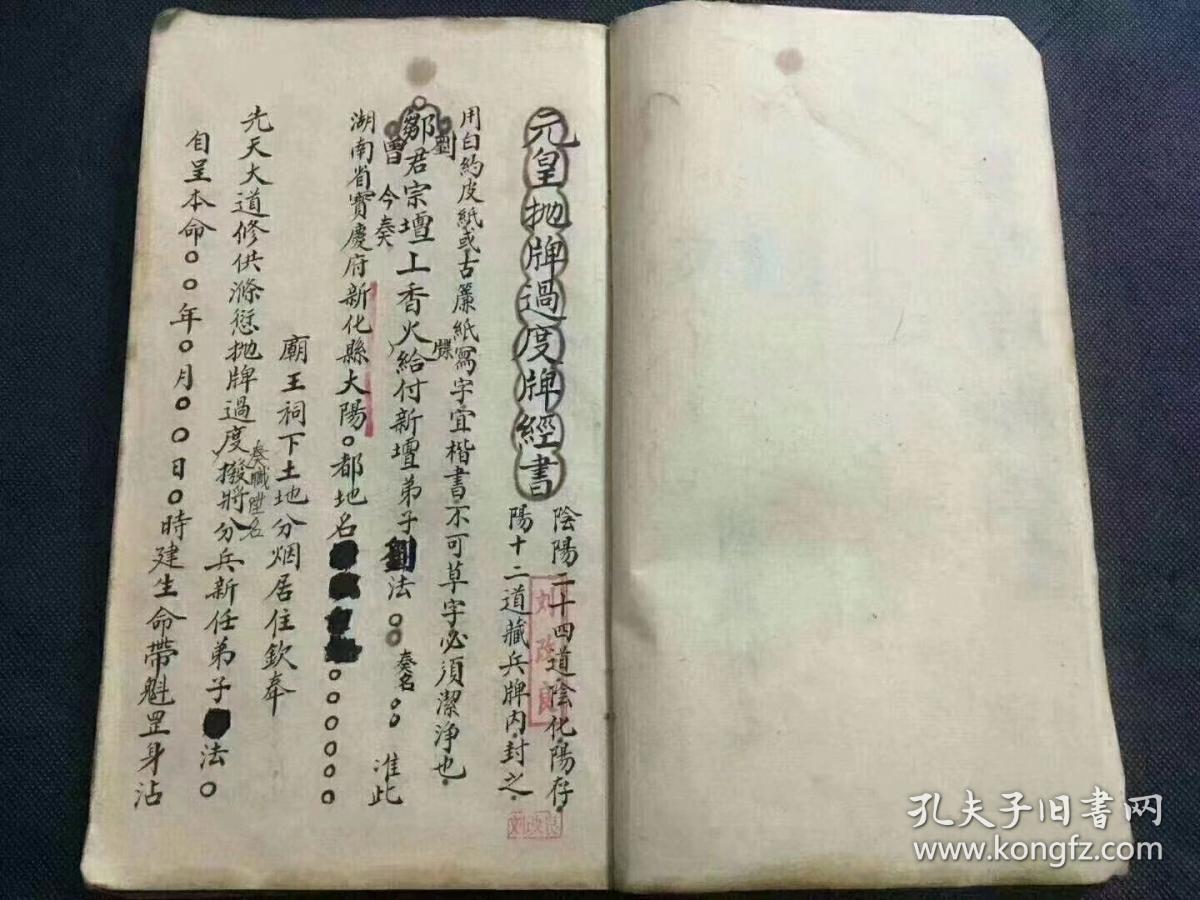 元皇抛牌過度牌經書
陰陽二十四道陰化陽存
陽十二道藏兵牌內封之
用白約皮紙或古簾紙寫字宜楷書不可草字必須潔淨也
劉
鄒君宗壇上香火給付新壇弟子劉法○○奏名○○ 准此
牒
曾 今奏
湖南省寳慶府新化縣大陽○都地名○○○○○○
廟王祠下土地分烟居住欽奉
先天大道修供滌愆抛牌過度撥將分兵新任弟子 法○
奏職壇名
自呈本命○○年○月○○日○時建生命帶魁罡身沾
刘改良
刘改良
孔夫子旧书网
www.kongfz.com